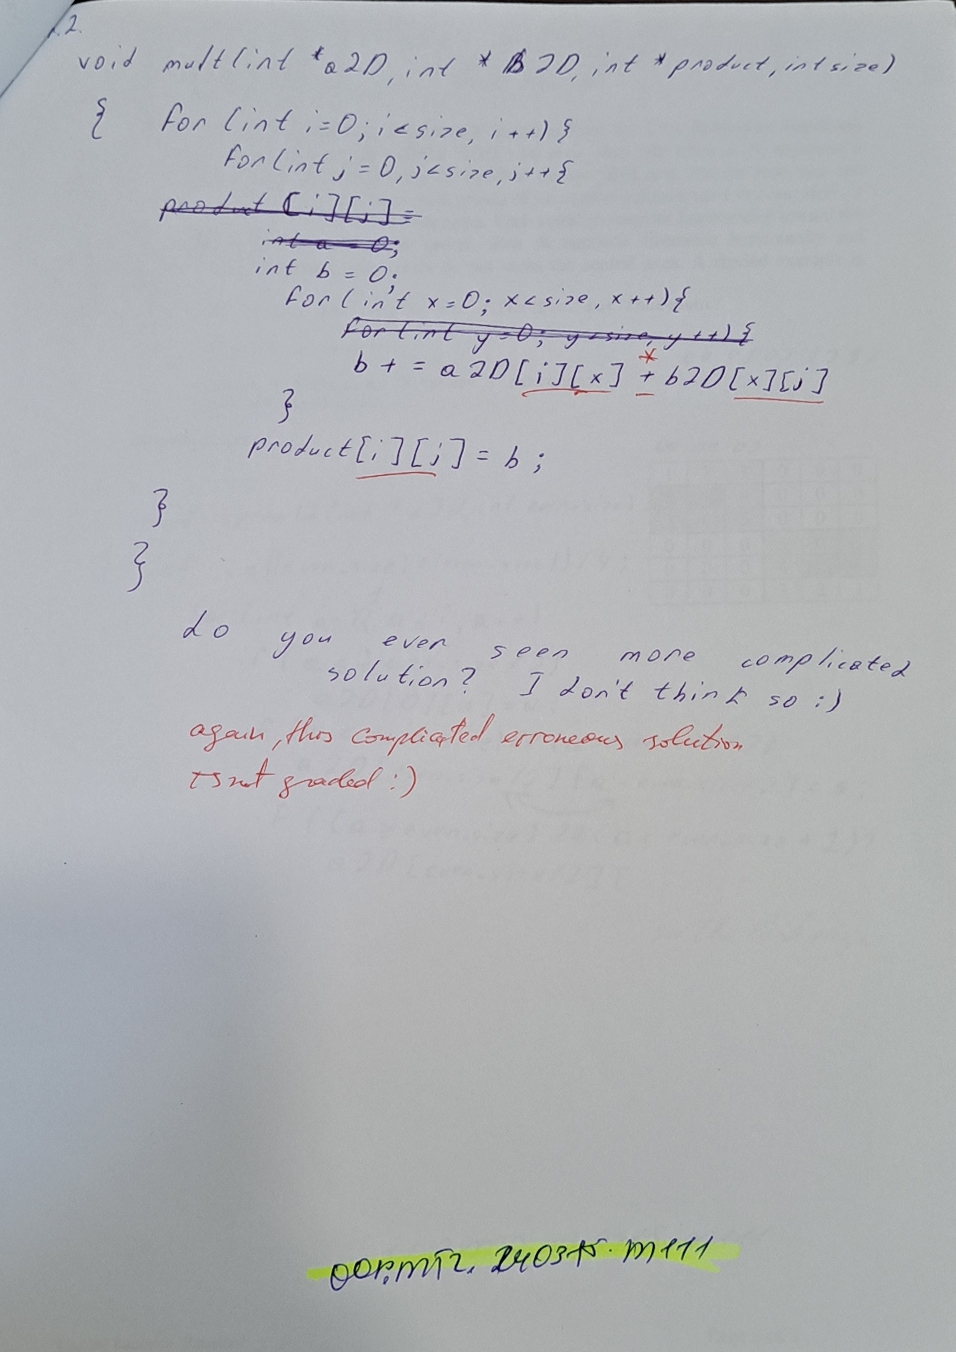 2.
void mult(int *a2D, int * B2D, int *product, int size)
{ for (int i=0; i<size, i++) {
for(int j=0, j<size, j++{
product [i][j]=
int a = 0;
int b = 0;
for(int x=0; x<size, x++){
for(int y=0; y<size, y++) {
*
b += a2D[i][x] + b2D[x][j]
}
product[i][j] = b ;
}
}
do you ever seen more complicated
solution? I don't think so :)
again, this complicated erroneous solution
is not graded :)